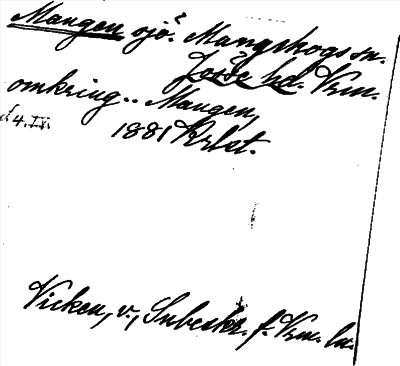 Mangen, sjö. Mangskogs sn.
Jösse hd. Vrm.
omkring.. Mangen,
1881 Krtst.
Vicken, v., Subeskr. f. Vrm. ln.